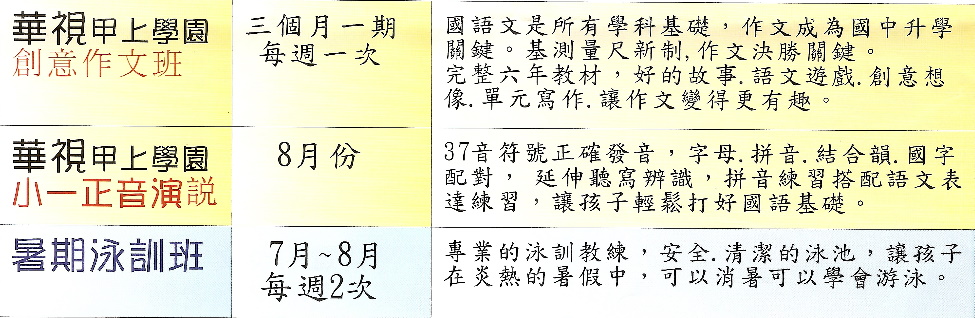 華視甲上學園
創意作文班
三個月一期
每週一次
國語文是所有學科基礎，作文成為國中升學
關鍵。基測量尺新制,作文決勝關鍵。
完整六年教材，好的故事.語文遊戲.創意想
像.單元寫作.讓作文變得更有趣。
華視甲上學園
小一正音演説
8月份
37音符號正確發音，字母.拼音.結合韻.國字
配對， 延伸聽寫辨識，拼音練習搭配語文表
達練習，讓孩子輕鬆打好國語基礎。
暑期泳訓班
7月~8月
每週2次
專業的泳訓教練，安全.清潔的泳池，讓孩子
在炎熱的暑假中，可以消暑可以學會游泳。